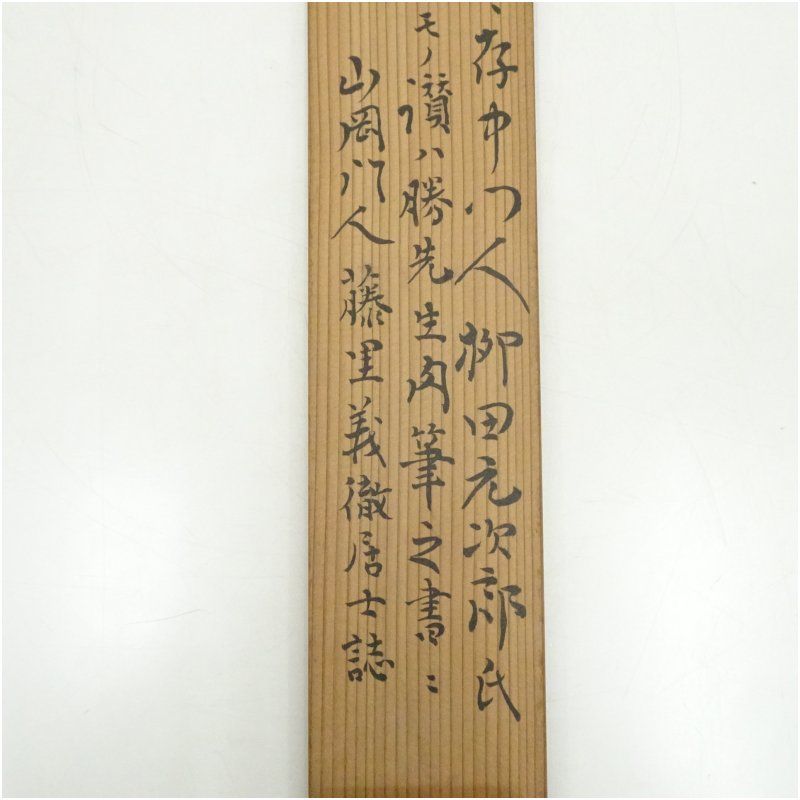 存中門人柳田元次郎氏
モノ讃ハ勝先生肉筆之書ニ
山岡門人 藤里義徹居士誌